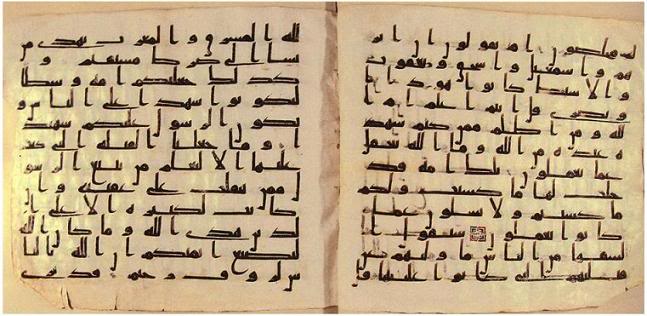 له مخلصون ام تقولون ان ابر
هيم و اسمعيل و اسحق و يعقوب
و الاسباط كانوا هودا ا
و نصرى قل انتم اعلم ام ا
لله و من اظلم ممن كتم شهد
ة عنده من الله و ما الله بغفل
عما تعملون تلك امة قد
خلت لها ما كسبت و لكم
ما كسبتم و لا تسلون عما
كانوا يعملون سيقول ا
لسفها من الناس ما وليهم عن
قبلتهم التي كانوا عليها قل
لله المشرق و المغرب يهدي من
يشا الى صرط مستقيم و
كذلك جعلنكم امة وسطا
لتكونوا شهدا على الناس و
يكون الرسول عليكم شهيد
ا و ما جعلنا القبلة التي كنت
عليها الا لنعلم من يتبع الرسو
ل ممن ينقلب على عقبيه و ان
كانت لكبيرة الا على ا
لذين هدى الله و ما كان الله
ليضيع ايمنكم ان الله بالنا
س لروف رحيم قد نر